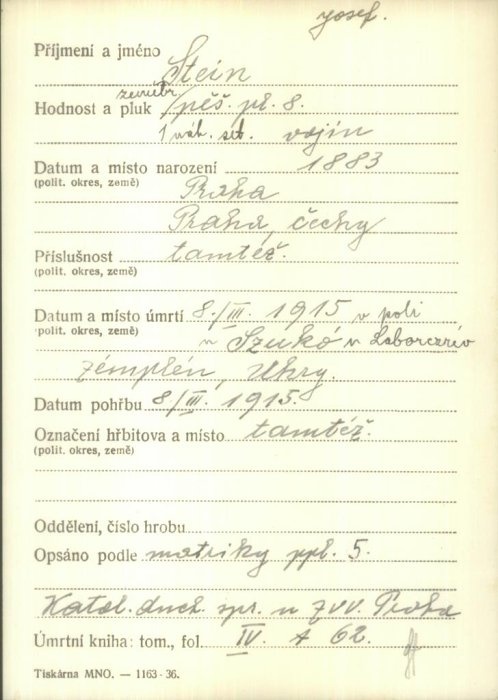 Josef.
Příjmení a jméno Stein
Hodnost a pluk pěš. pl. 8.
1 náh. set. vojín
Datum a místo narození 1883
(polit. okres, země) Praha
Praha, Čechy
Příslušnost tamtéž.
(polit. okres, země)
Datum a místo úmrtí 8./III. 1915 v poli
(polit. okres, země) u Szukó u Laborczrév
Zemplén, Uhry.
Datum pohřbu 8/III. 1915.
Označení hřbitova a místo tamtéž.
(polit. okres, země)
Oddělení, číslo hrobu
Opsáno podle matriky ppl. 5.
Katol. duch. spr. u ZVV. Praha
Úmrtní kniha: tom., fol. IV. A 62.
Tiskárna MNO. — 1163-36.